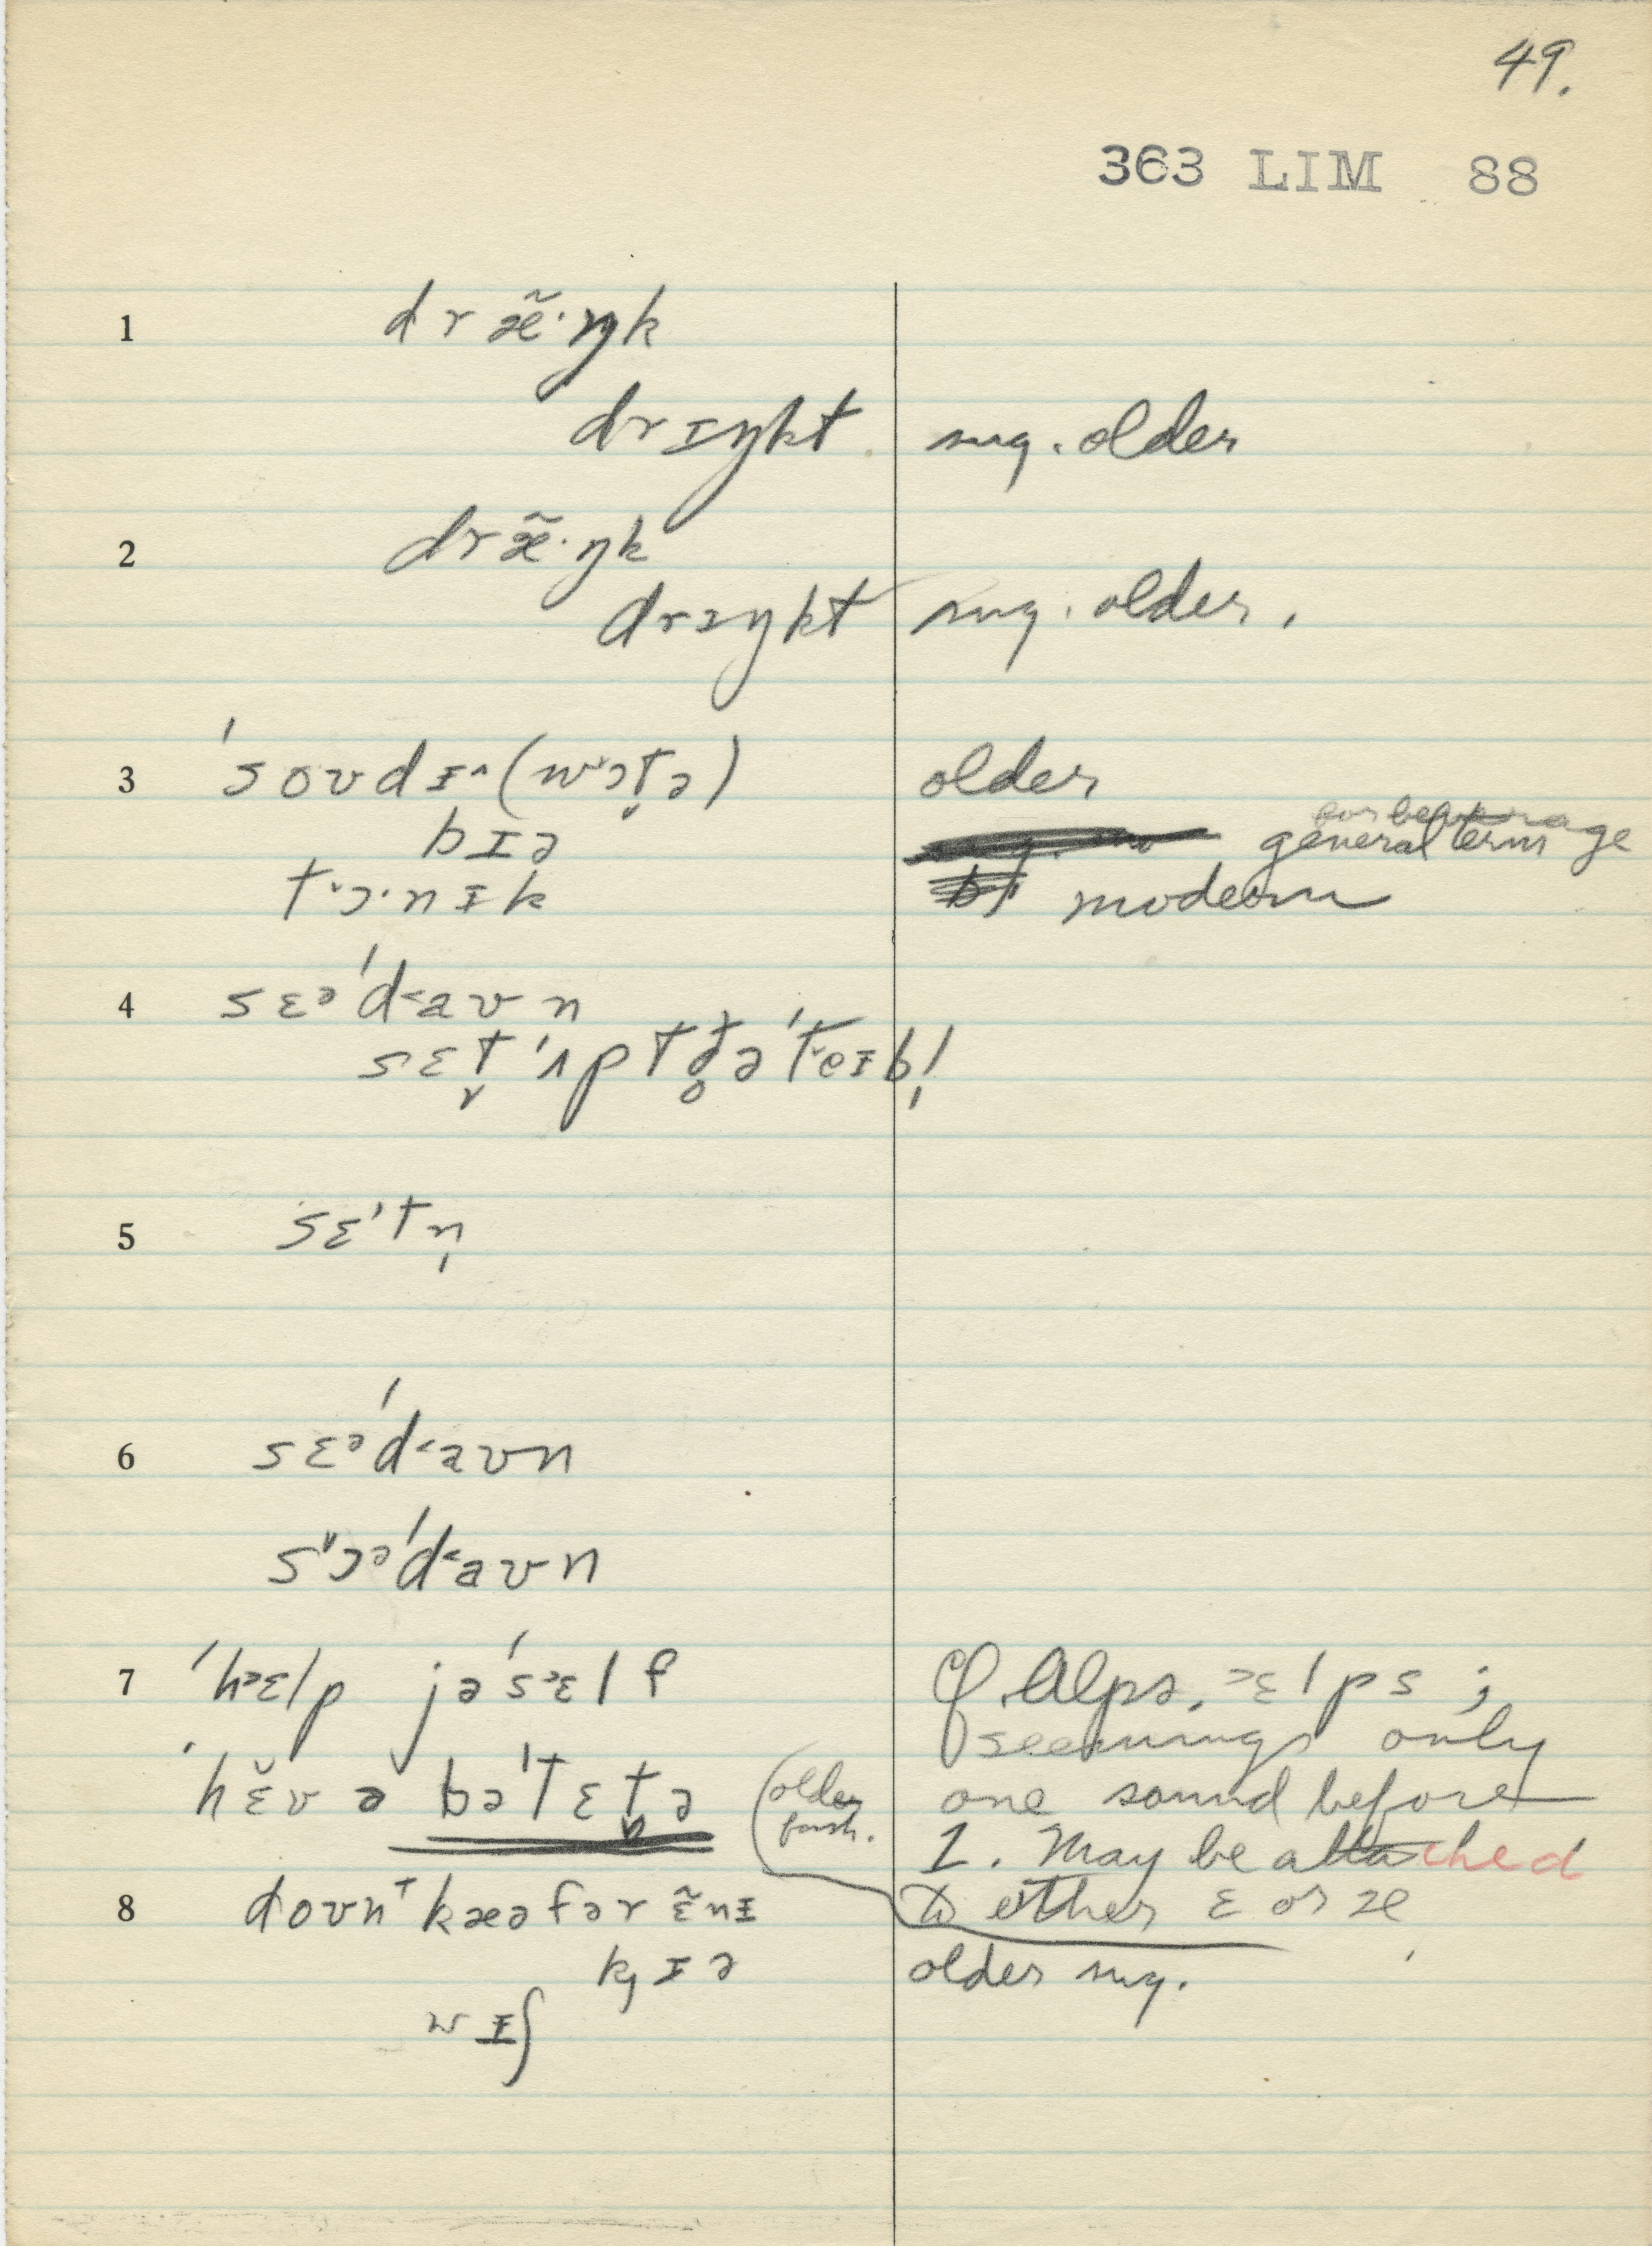 49.
363 LIM 88
1 dræ̃·ŋk
drɪŋkt sug. older
2 dræ̃·ŋk
drɪŋkt sug. older.
3 ˈsoʊdɪ^(wɔt̬ə) older
bɪə for beverage general term
tɔ·nɪk modern
4 sɛəˈd<aʊn
sɛt̬ ˈʌp tðəˈteɪb!
5 sɛˈtn̩
6 sɛəˈd<aʊn
sɔəˈd<aʊn
7 ˈhɛlp jəˈsɛlf Cf. Alps, ɛlps;
seemingly only
ˈhɛ̆v ə bəˈtɛt̬ə (older fash. one sound before
l. May be attached
8 doʊnt kæə fər ɛ̃nɪ to either ɛ or æ
kɪə older sug.
wɪʃ